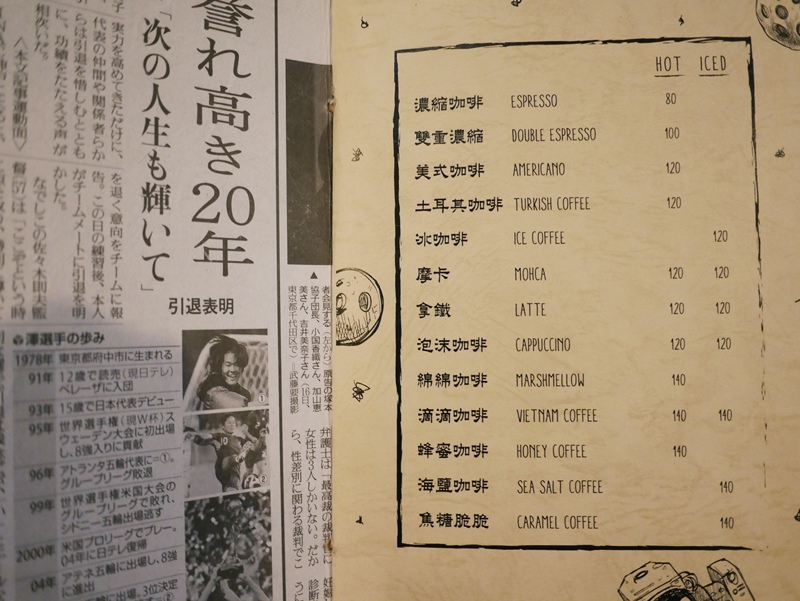 誉れ高き20年
「次の人生も輝いて」
引退表明
実力を高めてきただけに、
代表の仲間や関係者らか
らは引退を惜しむととも
に、功績をたたえる声が
相次いだ。
〈本文記事運動面〉
を退く意向をチームに報
告。この日の練習後、本人
がチームメートに引退を明
かした。
なでしこの佐々木則夫監
督(57)は「ここぞという時
澤選手の歩み
1978年 東京都府中市に生まれる
91年 12歳で読売(現日テレ)
ベレーザに入団
93年 15歳で日本代表デビュー
95年 世界選手権(現W杯)ス
ウェーデン大会に初出場
し、8強入りに貢献
96年 アトランタ五輪代表に=①。
グループリーグ敗退
99年 世界選手権米国大会の
グループリーグで敗れ、
シドニー五輪出場逃す
2000年 米国プロリーグでプレー。
04年に日テレ復帰
04年 アテネ五輪に出場し、8強
に進出
五輪に出場し、3位決定
①
②
▲
者会見する(左から)原告の塚本
協子団長、小国香織さん、加山恵
美さん、吉井美奈子さん(16日、
東京都千代田区で)=武藤要撮影
弁護士は「最高裁の裁判官に
女性は3人しかいない。だか
ら、性差別に関わる裁判でこ
HOT ICED
濃縮咖啡 ESPRESSO 80
雙重濃縮 DOUBLE ESPRESSO 100
美式咖啡 AMERICANO 120
土耳其咖啡 TURKISH COFFEE 120
冰咖啡 ICE COFFEE 120
摩卡 MOHCA 120 120
拿鐵 LATTE 120 120
泡沫咖啡 CAPPUCCINO 120 120
綿綿咖啡 MARSHMELLOW 140
滴滴咖啡 VIETNAM COFFEE 140 140
蜂蜜咖啡 HONEY COFFEE 140
海鹽咖啡 SEA SALT COFFEE 140
焦糖脆脆 CARAMEL COFFEE 140